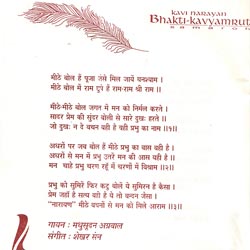 KAVI NARAYAN
Bhakti-kavyamrut
samaroh
मीठे बोल है पूजा उसे मिल जायें घनश्याम ।
मीठे बोल में राम दुपे हैं राम-राम श्री राम ॥
मीठे-मीठे बोल जगत में मन को निर्मल करते ।
सादर प्रेम की सुंदर बोली से सारे दुखः हरते ।
जो दुखः न दे वचन वही है वही प्रभु का नाम ॥१॥
अधरों पर जब बोल हैं मीठे प्रभु का वास वही है ।
अधरों से मन में प्रभु उतरे मन की आस वही है ।
मन चाहे प्रभु चरण रहूँ मैं चरणों में विश्राम ॥२॥
प्रभु को सुमिरे फिर कटु बोलें ये सुमिरन है कैसा ।
प्रेम जहाँ है सत्य वहाँ है ये तो वन्दन जैसा ।
"नारायण" मीठे वचनों से मन को मिले आराम ॥३॥
गायन : मधुसूदन अग्रवाल
संगीत : शेखर सेन